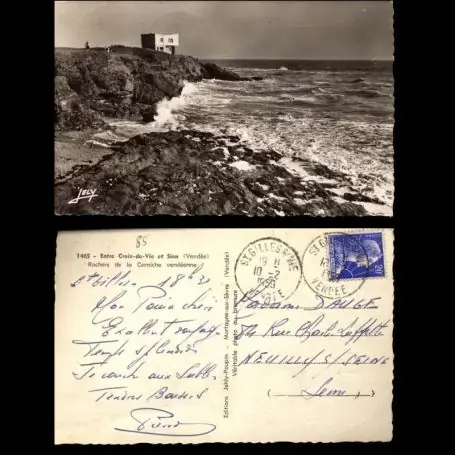 JELY
85
1465 - Entre Croix-de-Vie et Sion (Vendée)
Rochers de la Corniche vendéenne
St Gilles 18h30
Excellent voyage
Temps splendide
Je cours aux Sables
Tendres Baisers
Pierre
Editions Jehly-Poupin - Mortagne-sur-Sèvre (Vendée)
Véritable photo au bromure
ST GILLES S VIE
10-2
VENDEE
ST GILLES
VENDEE
20
Madame DAUGE
Rue Charles Laffitte
NEUILLY S/ SEINE
(Seine)